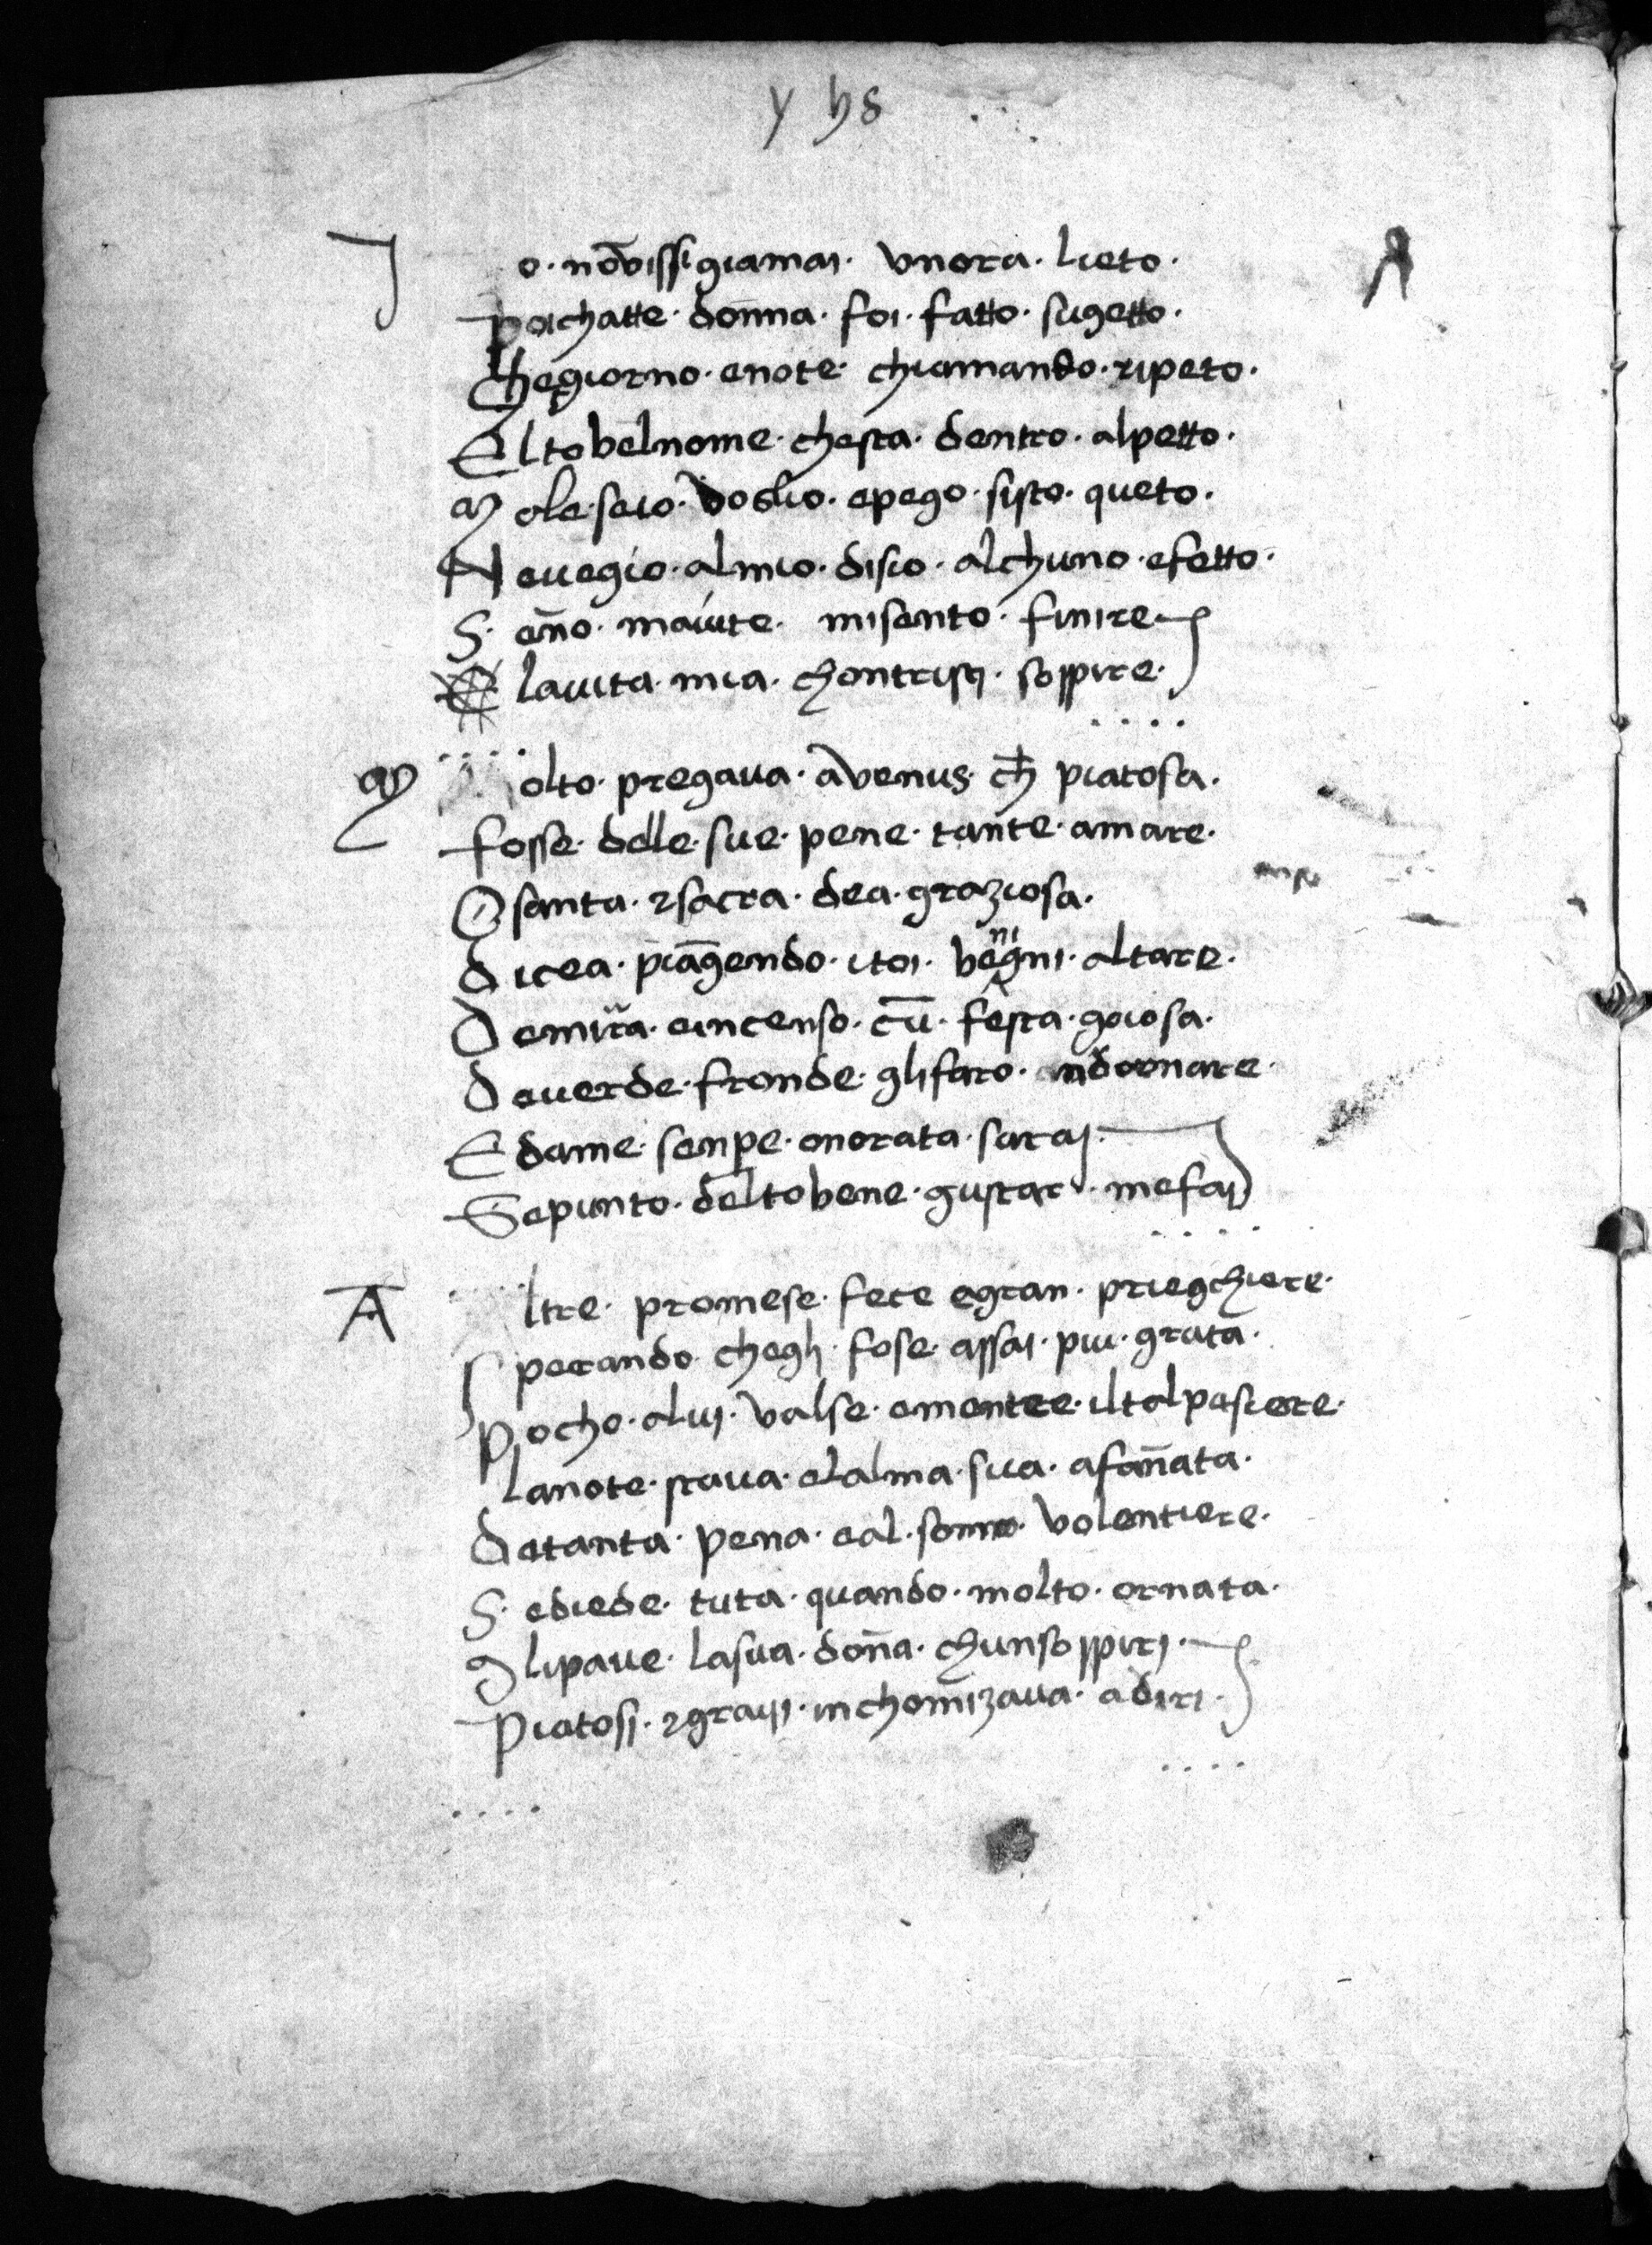 y hs
Jo · nōvissi giamai · vnora · lieto ·
poichatte · donna · foi · fatto · sugetto ·
Chegiorno · enote · chiamando · ripeto ·
El tobelnome · chesta · dentro · alpetto ·
M ole · seio · voglio · epego · sisto · queto ·
N euegio · almio · disio · alchuno · efetto ·
S · eño · maiute · misento · finire
E lauita · mia · chontristi · sospire ·
M olto · pregaua · avenus · ch̄ piatosa ·
fosse · delle · sue · pene · tante · amare ·
O santa · 2sacra · dea · graziosa ·
d icea · piāgendo · itoi · benigni · altare ·
D emirra · eincenso · cū · festa · goiosa ·
d euerde · fronde · glifaro · adornare ·
E dame · senpe · onorata · sarai ·
Sepunto · deltobene · gustar · mefai
A ltre · promese · fece egran · priegchiere ·
S perando chegli · fose · assai · piu · grata ·
pocho · alui · valse · ementre · iltalpensiere ·
Lanote · staua · elalma · sua · afañata ·
detanta · pena · eal · sonno · volentiere ·
S · ediede · tuta · quando · molto · ornata ·
g lipaue · lasua · doña · chunsospiri ·
piatosi · 2graui · inchomīzaua · adiri ·